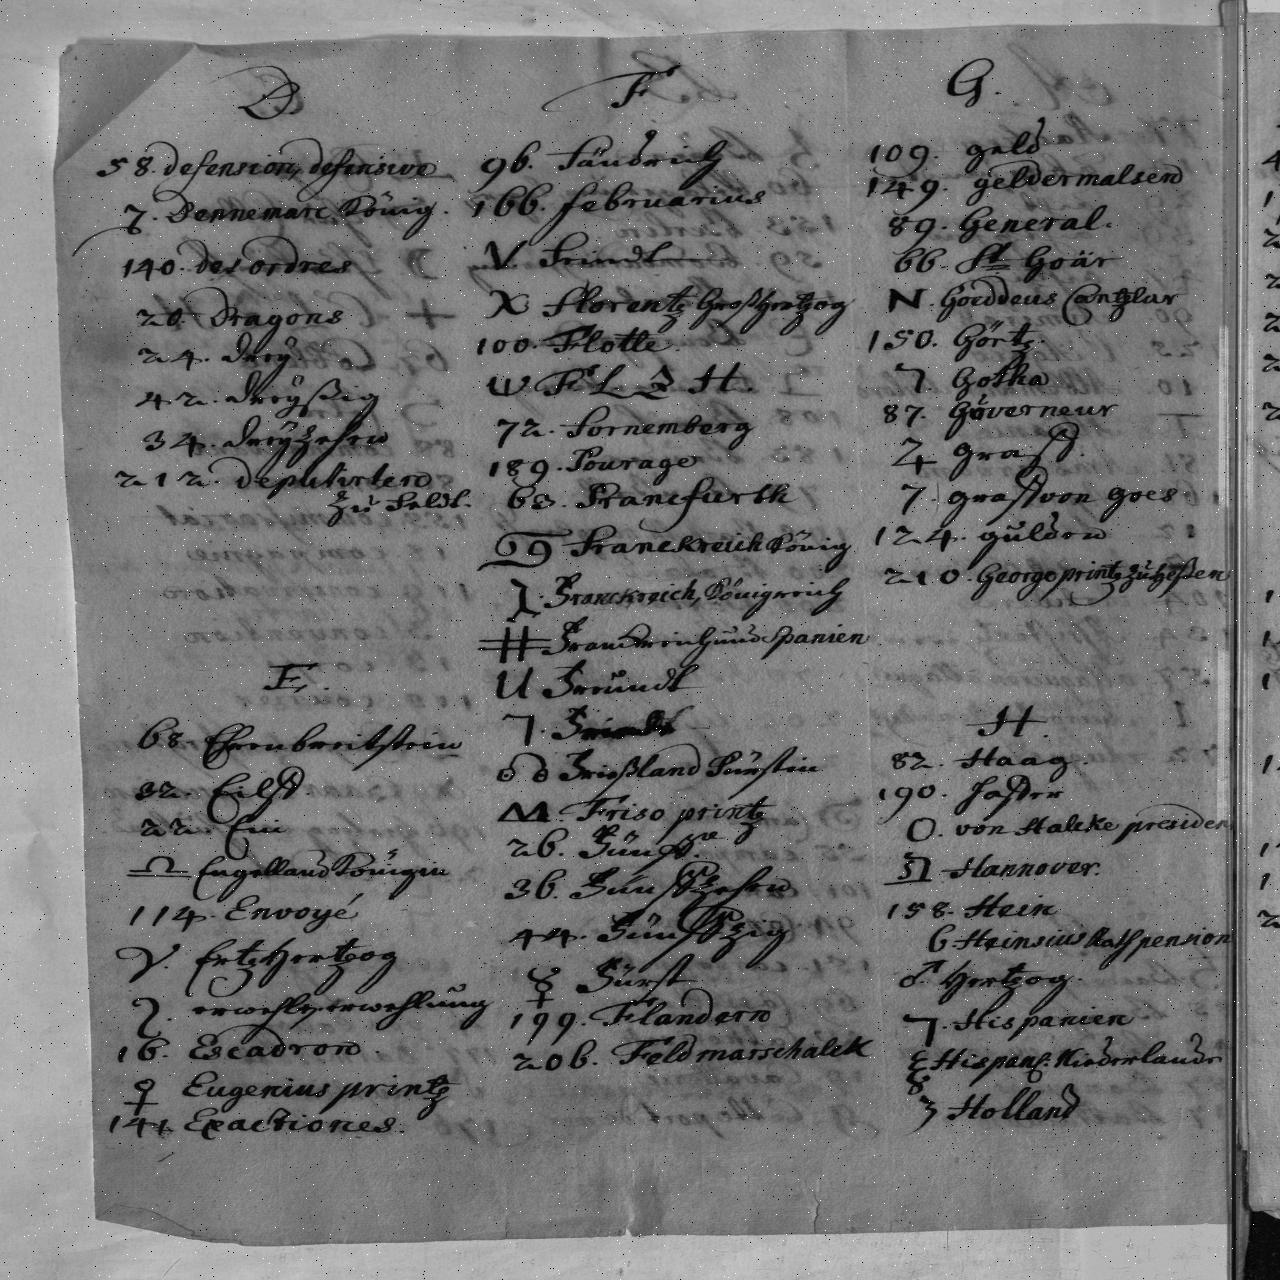 D
58. defension, defensive
Dennemarc König.
140. des ordres
20. Dragons
24. drey
42. dreyßig
34. dreyzehen
212. deputirten
zu Feldt.
E.
68. Ehrenbreitstein
32. Eilff
22. Ein
Engelland Königin
114. Envoyé
V. Ertzhertzog
erwehlt, erwehlung
16. Escadron.
♀ Eugenius printz
141. Exactiones.
F
96. Fändrich
166. februarius
V
X Florentz Großhertzog
100. Flotte.
72. Fornemberg
189. Fourage
Francfurth
Franckreich König
Franckreich, Königreich
Franckreich und Spanien
U Freündt
7.
Frießland Fürstin
M. Friso printz
26. Fünff.
36. Fünffzehen
44. Fünffzig
Fürst
199. Flandern
206. Feldmarschalck
G.
109. geld
149. geldermalsen
89. General.
66. St Goär
N. Goeddeus Cantzlar
150. Görtz.
7 Gotha
87. Governeur
graff.
7. graff von Goes
124. gulden
210. George printz zu Heßen
H.
82. Haag.
190. haffer
O. von Halcke presiden
Hannover.
158. Hein
6 Heinsius Rathpension
♂. Hertzog.
7. Hispanien
Hispans. Niederlande
3 Holland